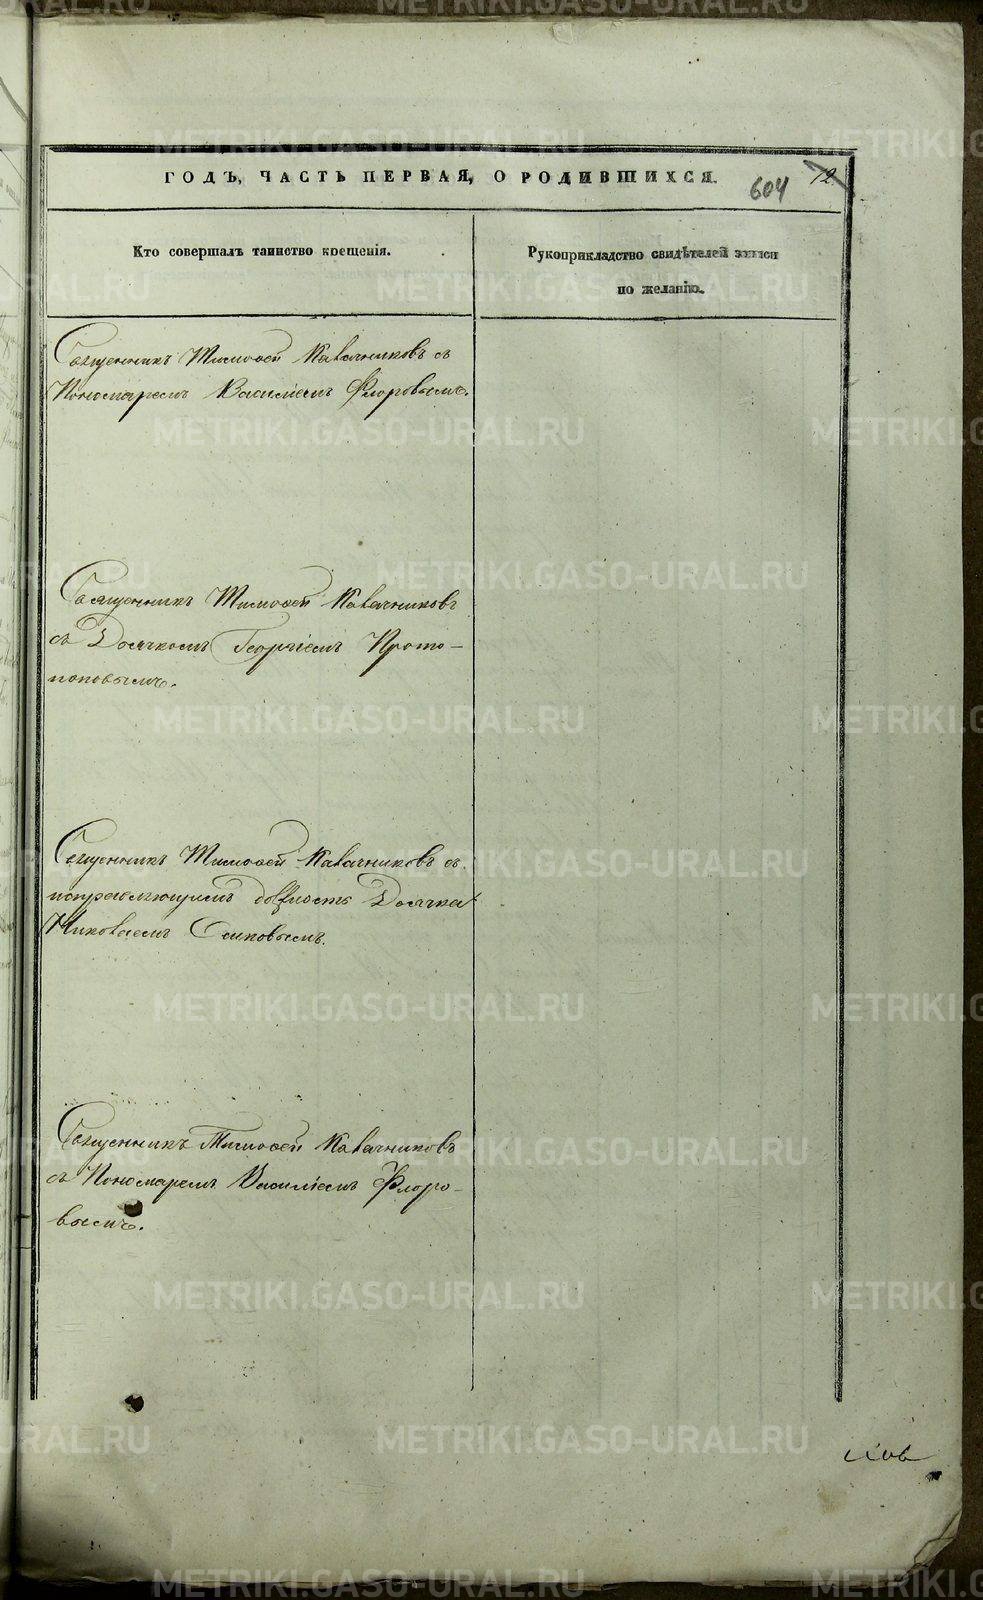 ГОДЪ, ЧАСТЬ ПЕРВАЯ, О РОДИВШИХСЯ.
604 12
Кто совершалъ таинство крещенія.
Рукоприкладство свидѣтелей записи
по желанію.
Священникъ Тимоѳей Кавачниковъ съ
Пономаремъ Василіемъ Флоровымъ.
Священникъ Тимоѳей Кавачниковъ
съ Дьячкомъ Георгіемъ Прото-
поповымъ.
Священникъ Тимоѳей Кавачниковъ съ
исправляющимъ должность Дьячка
Николаемъ
Священникъ Тимоѳей Кавачниковъ
съ Пономаремъ Василіемъ Флоро-
вымъ.
METRIKI.GASO-URAL.RU